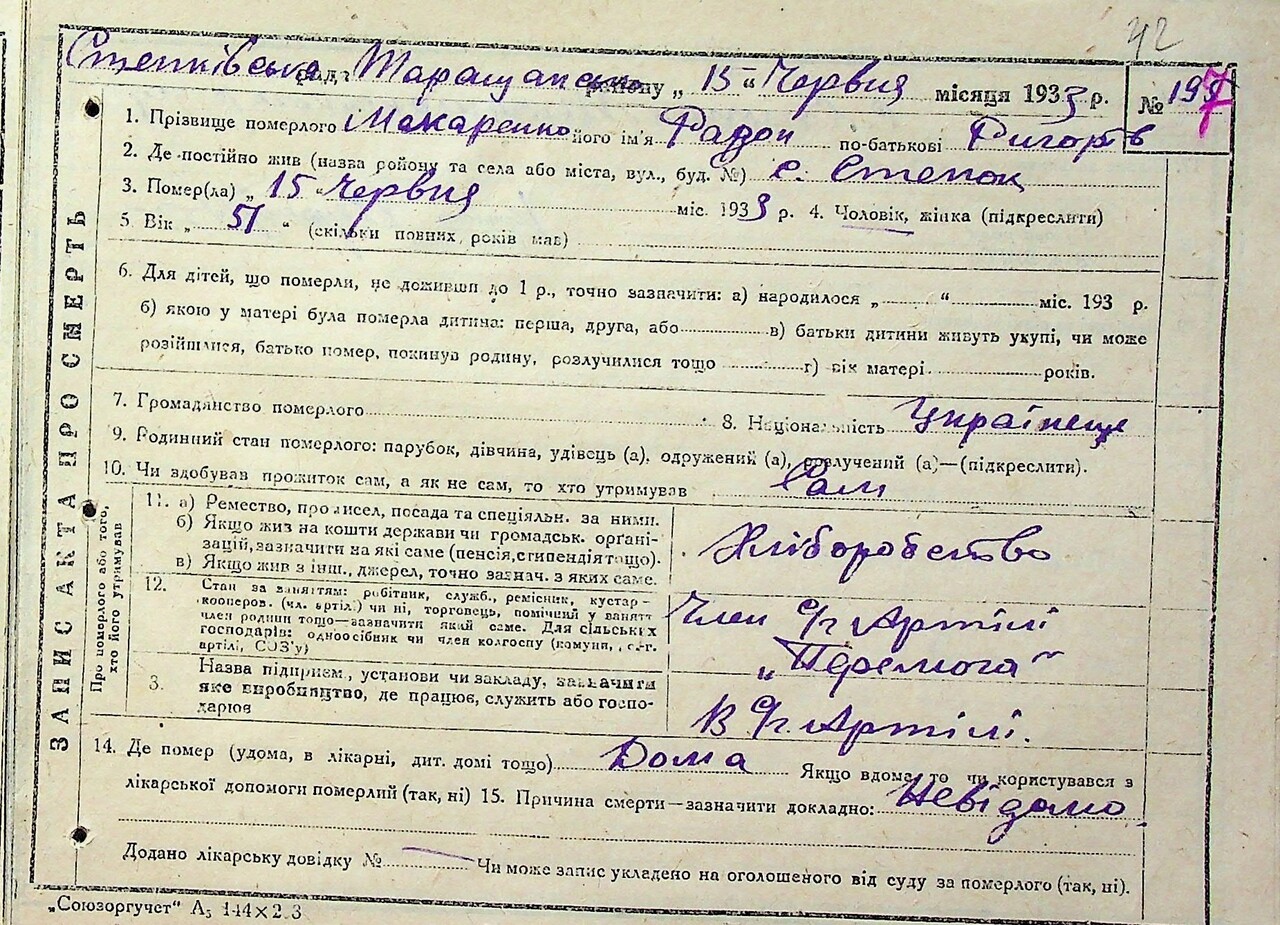 42
Степківська рада Таращанськ району „ 15 “ Червня місяця 1933 р.
№ 197
1. Прізвище померлого Макаренко його ім'я Радон по-батькові Ригорів
2. Де постійно жив (назва району та села або міста, вул., буд. №) с. Степок
3. Помер(ла) „ 15 “ Червня міс. 1933 р. 4. Чоловік, жінка (підкреслити)
5. Вік „ 51 “ (скільки повних, років мав)
6. Для дітей, що померли, не доживши до 1 р., точно зазначити: а) народилося „ “ міс. 193 р.
б) якою у матері була померла дитина: перша, друга, або в) батьки дитини живуть укупі, чи може
розійшлися, батько помер, покинув родину, розлучилися тощо г) вік матері років.
7. Громадянство померлого 8. Національність Українець
9. Родинний стан померлого: парубок, дівчина, удівець (а), одружений (а), розлучений (а)—(підкреслити).
10. Чи здобував прожиток сам, а як не сам, то хто утримував Сам
ЗАПИС АКТА ПРО СМЕРТЬ
Про померлого або того,
хто його утримував
11. а) Ремество, промисел, посада та спеціяльн. за ними.
б) Якщо жив на кошти держави чи громадськ. орґані-
зацій, зазначити на які саме (пенсія, стипендія тощо).
в) Якщо жив з інш., джерел, точно зазнач. з яких саме.
Хліборобство
12. Стан за заняттям: робітник, служб., ремісник, кустар-
кооперов. (чл. артілі) чи ні, торговець, помічний у занятт
член родини тощо—зазначити який саме. Для сільських
господарів: одноосібник чи член колгоспу (комуни, с.-г.
артілі, СОЗ'у)
Член с/г Артілі
„Перемога“
3. Назва підприєм., установи чи закладу, зазначити
яке виробництво, де працює, служить або госпо-
дарює
В с/г. Артілі.
14. Де помер (удома, в лікарні, дит. домі тощо) Дома Якщо вдома, то чи користувався з
лікарської допомоги померлий (так, ні) 15. Причина смерти—зазначити докладно: Невідомо
Додано лікарську довідку № Чи може запис укладено на оголошеного від суду за померлого (так, ні).
„Союзоргучет“ А5 144×2 3